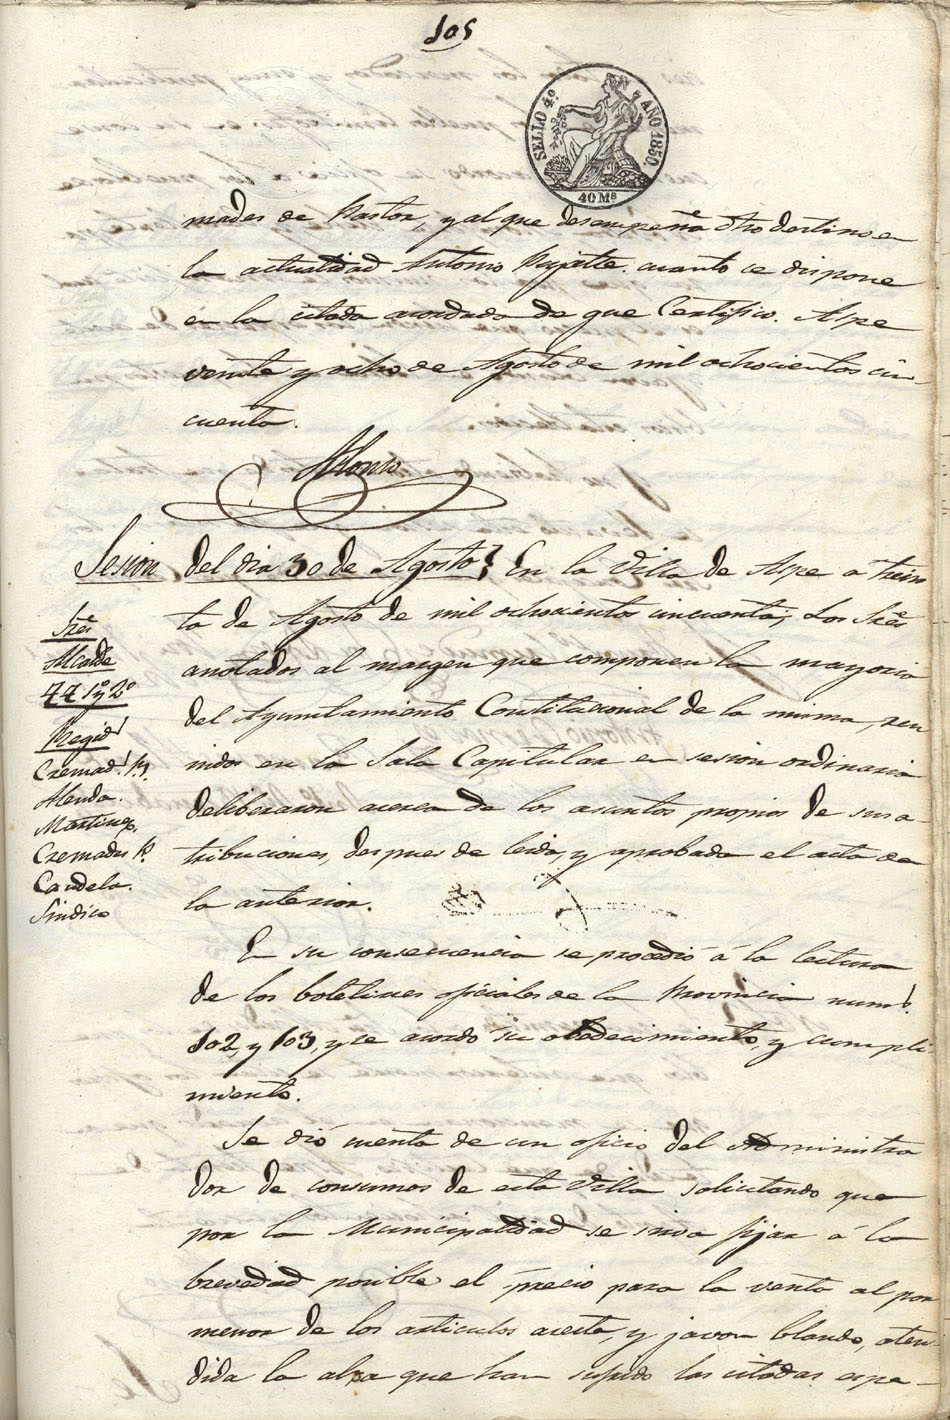 105
SELLO 4º AÑO 1850
40 Ms
mades de Pastor, y al que desempeña dho destino en
la actualidad Antonio cuanto se dispone
en la citada acordada de que Certifico. Aspe
veinte y ocho de Agosto de mil ochocientos cin-
cuenta.
Alonso
Sesion del dia 30 de Agosto} En la Villa de Aspe a trein
ta de Agosto de mil ochocientos cincuenta; Los Sres
anotados al margen que componen la mayoria
del Ayuntamiento Constitucional de la misma, reu
nidos en la Sala Capitular en sesion ordinaria
deliberaron acerca de los asuntos propios de sus a-
tribuciones, despues de leida, y aprobada el acta de
la anterior.
Sres
Alcalde
1º y 2º
Regid.
Cremad.
Alenda.
Martinez.
Cremades P.
Candela.
Sindico
En su consecuencia se procedió á la lectura
de los boletines oficiales de la Provincia num.
102, y 103, y se acordó su obedecimiento, y cumpli-
miento.
Se dió cuenta de un oficio del Administra
dor de consumos de esta Villa solicitando que
por la Municipalidad se sirva fijar á la
brevedad posible el precio para la venta al por
menor de los articulos aceite, y javon blando, aten-
dida la alza que han sufrido las citadas espe-